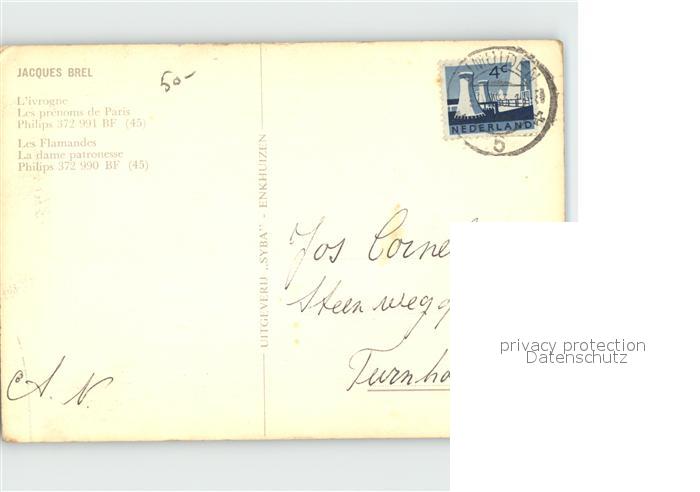 JACQUES BREL
50-
L'ivrogne
Les prénoms de Paris
Philips 372 991 BF (45)
Les Flamandes
La dame patronesse
Philips 372 990 BF (45)
UITGEVERIJ „SYBA" - ENKHUIZEN
4c
NEDERLAND
5
Jos Corne
Steenweg
Turnho
A. V.
privacy protection
Datenschutz